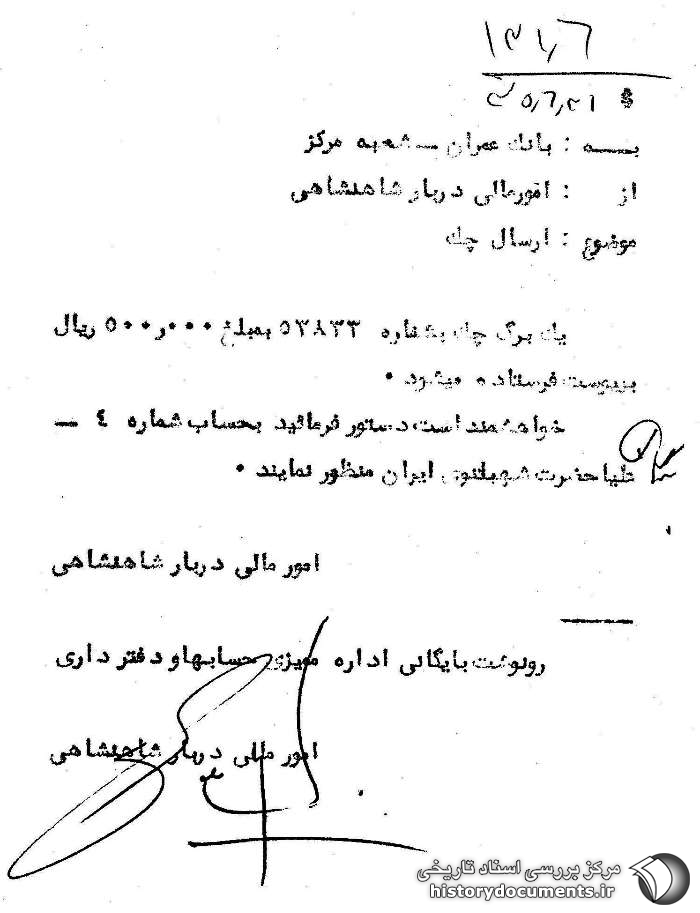 ۱۳۸٫۶
بـــه : بانك عمران ــ شعبه مركز
از : امورمالی دربار شاهنشاهی
موضوع : ارسال چك
يك برگ چك بشماره ۵۳۸۳۳ بمبلغ ۵۰۰ر۰۰۰ ريال
بپيوست فرستاده ميشود ۰
خواهشمند است دستور فرمائيد بحساب شماره ٤ ــ
عليا حضرت شهبانوی ايران منظور نمايند ۰
امور مالی دربار شاهنشاهی
رونوشت بايگانی اداره مميزی حسابهاو دفتر داری
امور مالی دربار شاهنشاهی
مرکز بررسی اسناد تاریخی
historydocuments.ir